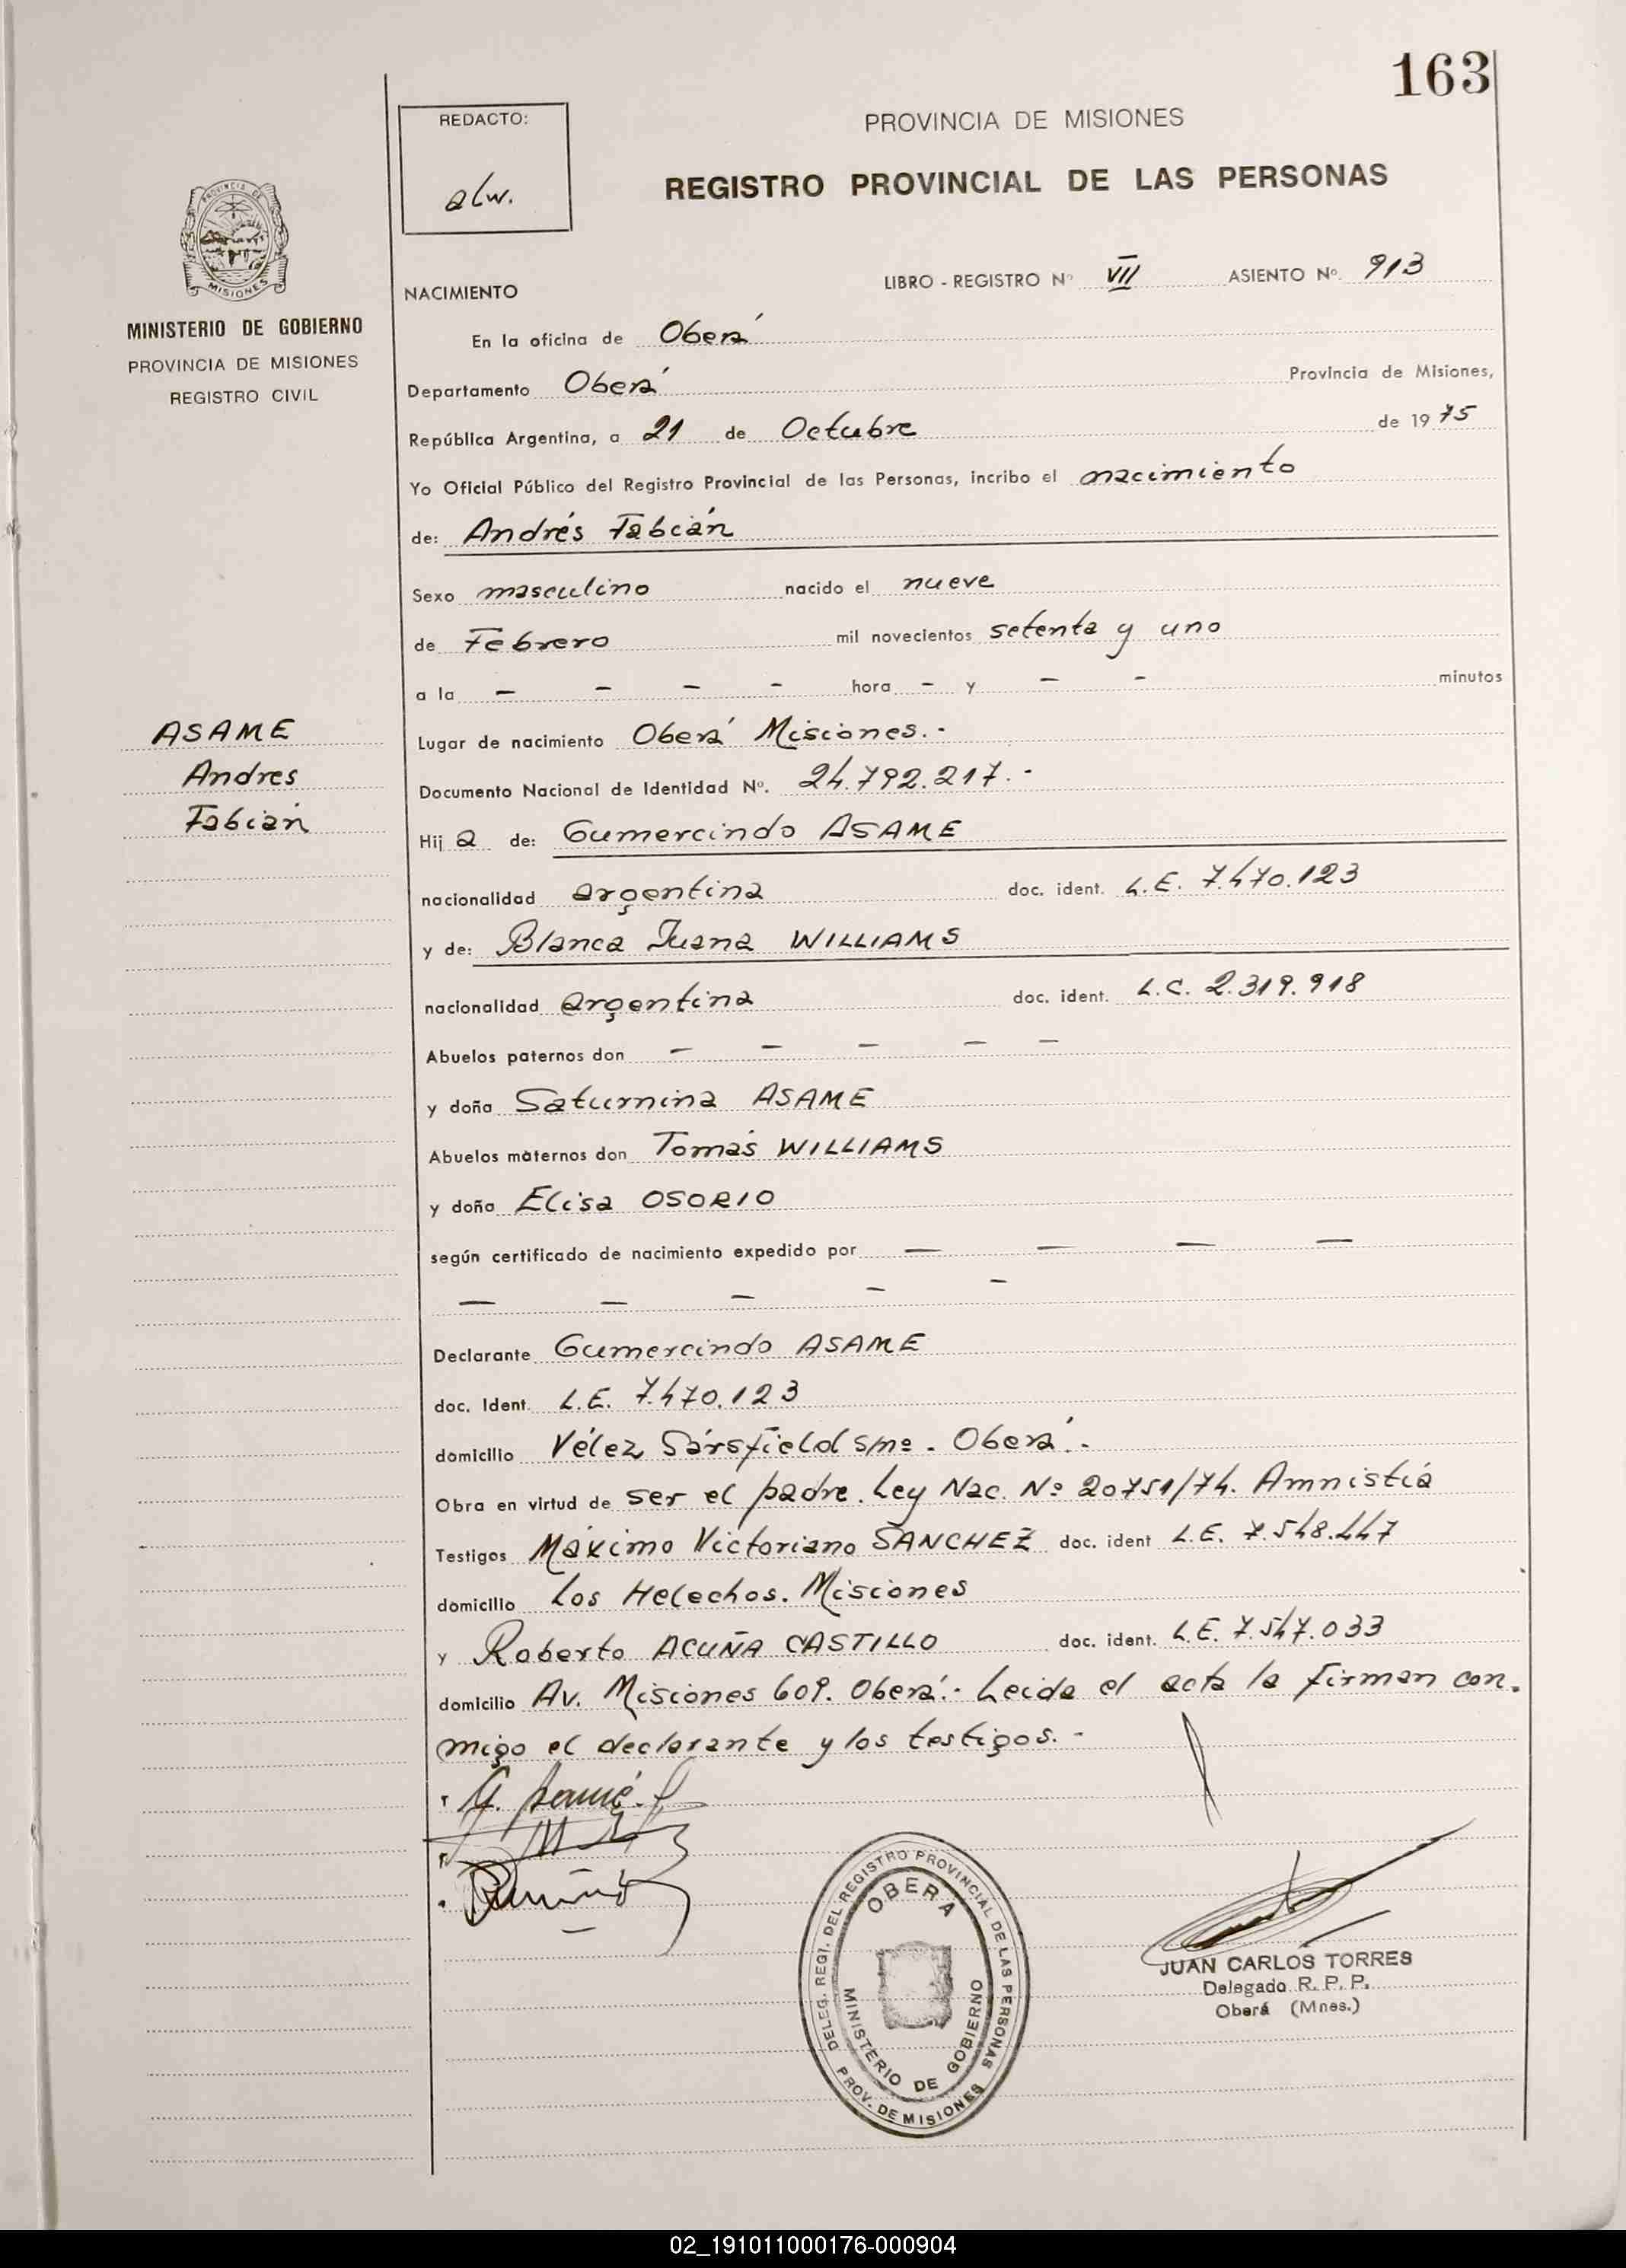 163
REDACTO:
alw.
PROVINCIA DE MISIONES
REGISTRO PROVINCIAL DE LAS PERSONAS
PROVINCIA DE
MISIONES
MINISTERIO DE GOBIERNO
PROVINCIA DE MISIONES
REGISTRO CIVIL
LIBRO - REGISTRO Nº VII ASIENTO Nº. 913
NACIMIENTO
En la oficina de Oberá
Departamento Oberá Provincia de Misiones,
República Argentina, a 21 de Octubre de 1975
Yo Oficial Público del Registro Provincial de las Personas, incribo el nacimiento
de: Andrés Fabián
Sexo masculino nacido el nueve
de Febrero mil novecientos setenta y uno
a la - - - - hora - y - - minutos
ASAME
Andres
Fabián
Lugar de nacimiento Oberá Misiones.-
Documento Nacional de Identidad Nº. 24.792.217.-
Hij o de: Gumercindo ASAME
nacionalidad argentina doc. ident. L.E. 7.470.123
y de: Blanca Juana WILLIAMS
nacionalidad argentina doc. ident. L.C. 2.319.918
Abuelos paternos don - - - - -
y doña Saturnina ASAME
Abuelos maternos don Tomás WILLIAMS
y doña Elisa OSORIO
según certificado de nacimiento expedido por - - - -
- - - - -
Declarante Gumercindo ASAME
doc. Ident. L.E. 7.470.123
domicilio Vélez Sársfield s/nº. Oberá.-
Obra en virtud de ser el padre. Ley Nac. Nº 20751/74. Amnistía
Testigos Máximo Victoriano SANCHEZ doc. ident L.E. 7.548.447
domicilio Los Helechos. Misiones
y Roberto ACUÑA CASTILLO doc. ident. L.E. 7.547.033
domicilio Av. Misiones 609. Oberá.- Leida el acta la firman con-
migo el declarante y los testigos.-
G. Asamé.
DELEG. REGI. DEL REGISTRO PROVINCIAL DE LAS PERSONAS
OBERA
MINISTERIO DE GOBIERNO
PROV. DE MISIONES
JUAN CARLOS TORRES
Delegado R. P. P.
Oberá (Mnes.)
02_191011000176-000904